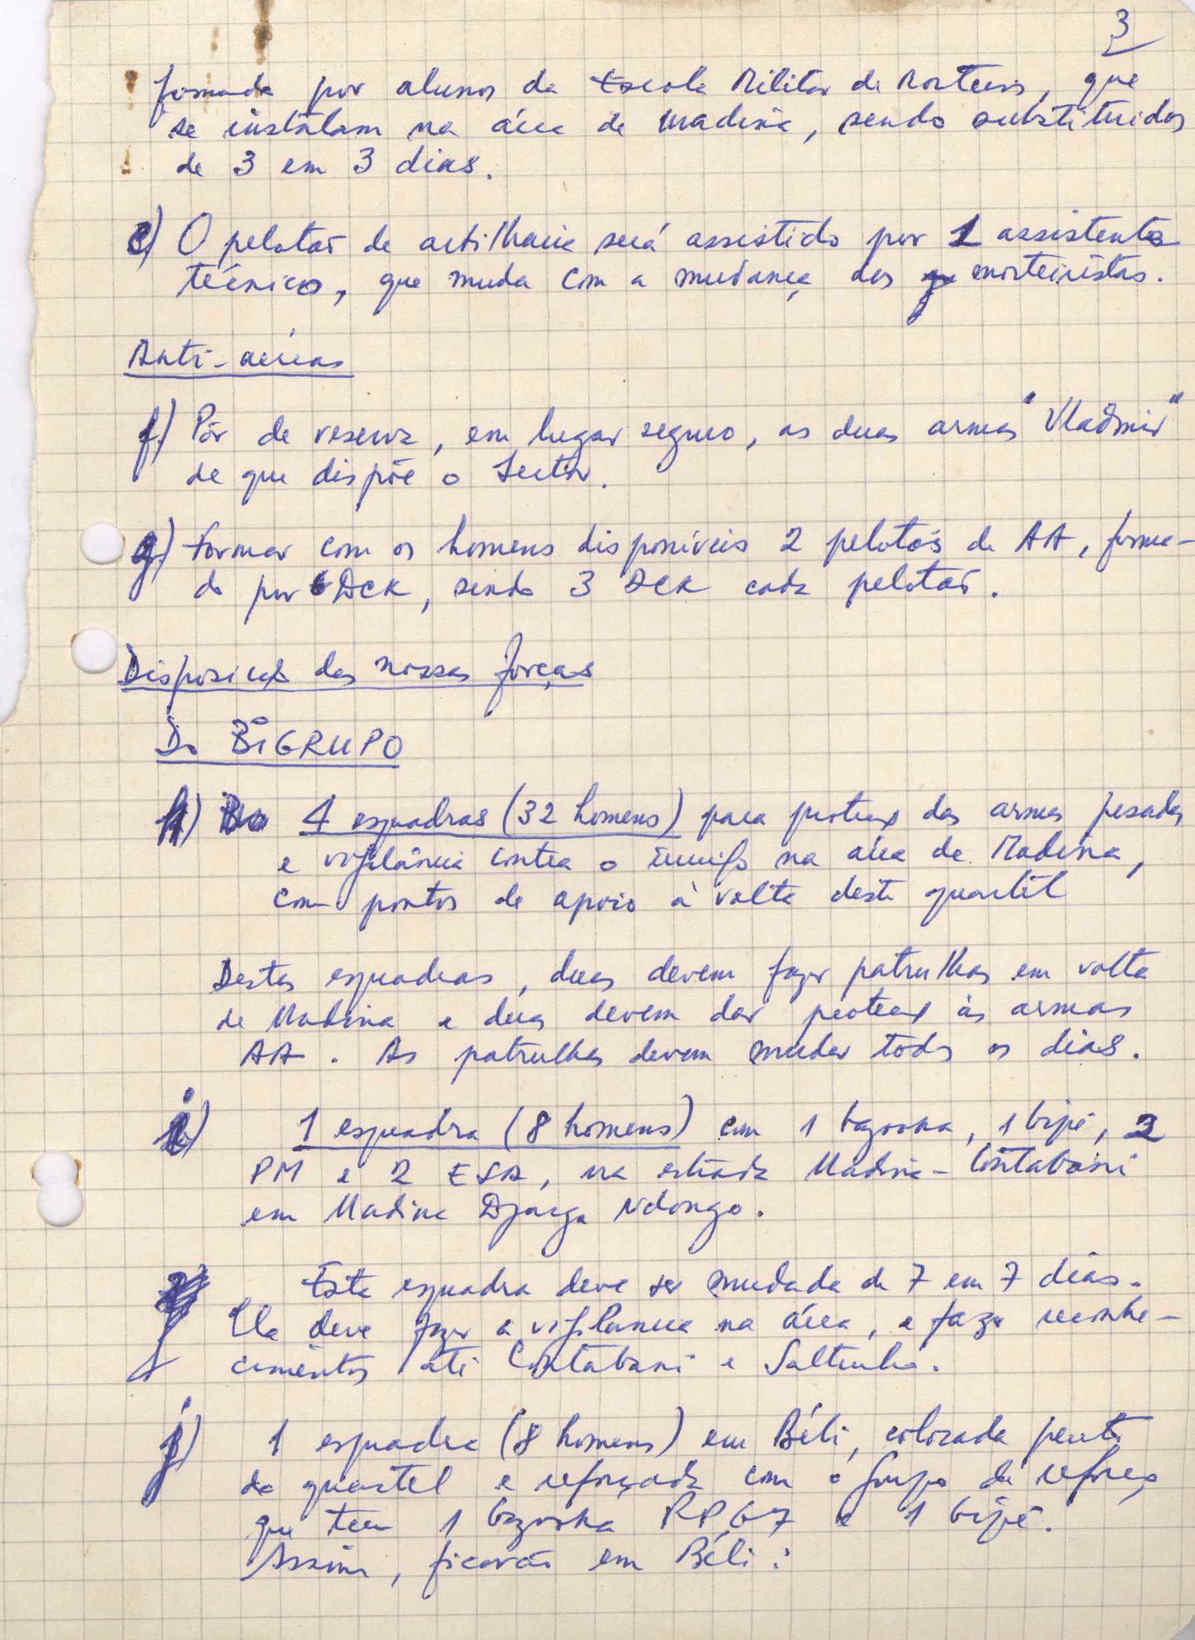 3
formada por alunos da Escola Militar de Morteiros, que
se instalam na área de Madina, sendo substituidos
de 3 em 3 dias.
e) O pelotão de artilharia será assistido por 1 assistente
técnico, que muda com a mudança dos morteiristas.
Anti-aéreas
f) Pôr de reserva, em lugar seguro, as duas armas "Vladimir"
de que dispõe o Sector.
g) Formar com os homens disponíveis 2 pelotões de AA, forma-
do por 6 DCK, sendo 3 DCK cada pelotão.
Disposição das nossas forças
Do BIGRUPO
h) 4 esquadras (32 homens) para protecção das armas pesadas
e vigilância contra o inimigo na área de Madina,
com pontos de apoio à volta deste quartel
Destas esquadras, duas devem fazer patrulhas em volta
de Madina e duas devem dar protecção às armas
AA. As patrulhas devem mudar todos os dias.
i) 1 esquadra (8 homens) com 1 bazooka, 1 bipé, 2
PM e 2 ESA, na estrada Madina-Contabani
em Madina Djarga Ndongo.
Esta esquadra deve ser mudada de 7 em 7 dias.
Ela deve fazer a vigilância na área, e fazer reconhe-
cimentos até Contabani e Saltinho.
j) 1 esquadra (8 homens) em Béli, colocada perto
do quartel e reforçada com o grupo de reforço
que tem 1 bazooka RPG7 e 1 bipé.
Assim, ficarão em Béli: